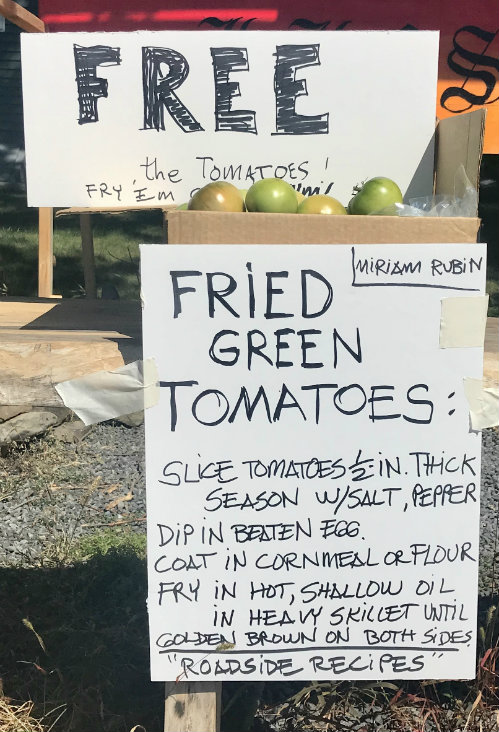 FREE
the TOMATOES!
FRY 'Em
MIRIAM RUBIN
FRIED
GREEN
TOMATOES:
SLICE TOMATOES 1/2 IN. THICK
SEASON W/SALT, PEPPER
DIP IN BEATEN EGG.
COAT IN CORNMEAL OR FLOUR
FRY IN HOT, SHALLOW OIL
IN HEAVY SKILLET UNTIL
GOLDEN BROWN ON BOTH SIDES
"ROADSIDE RECIPES"